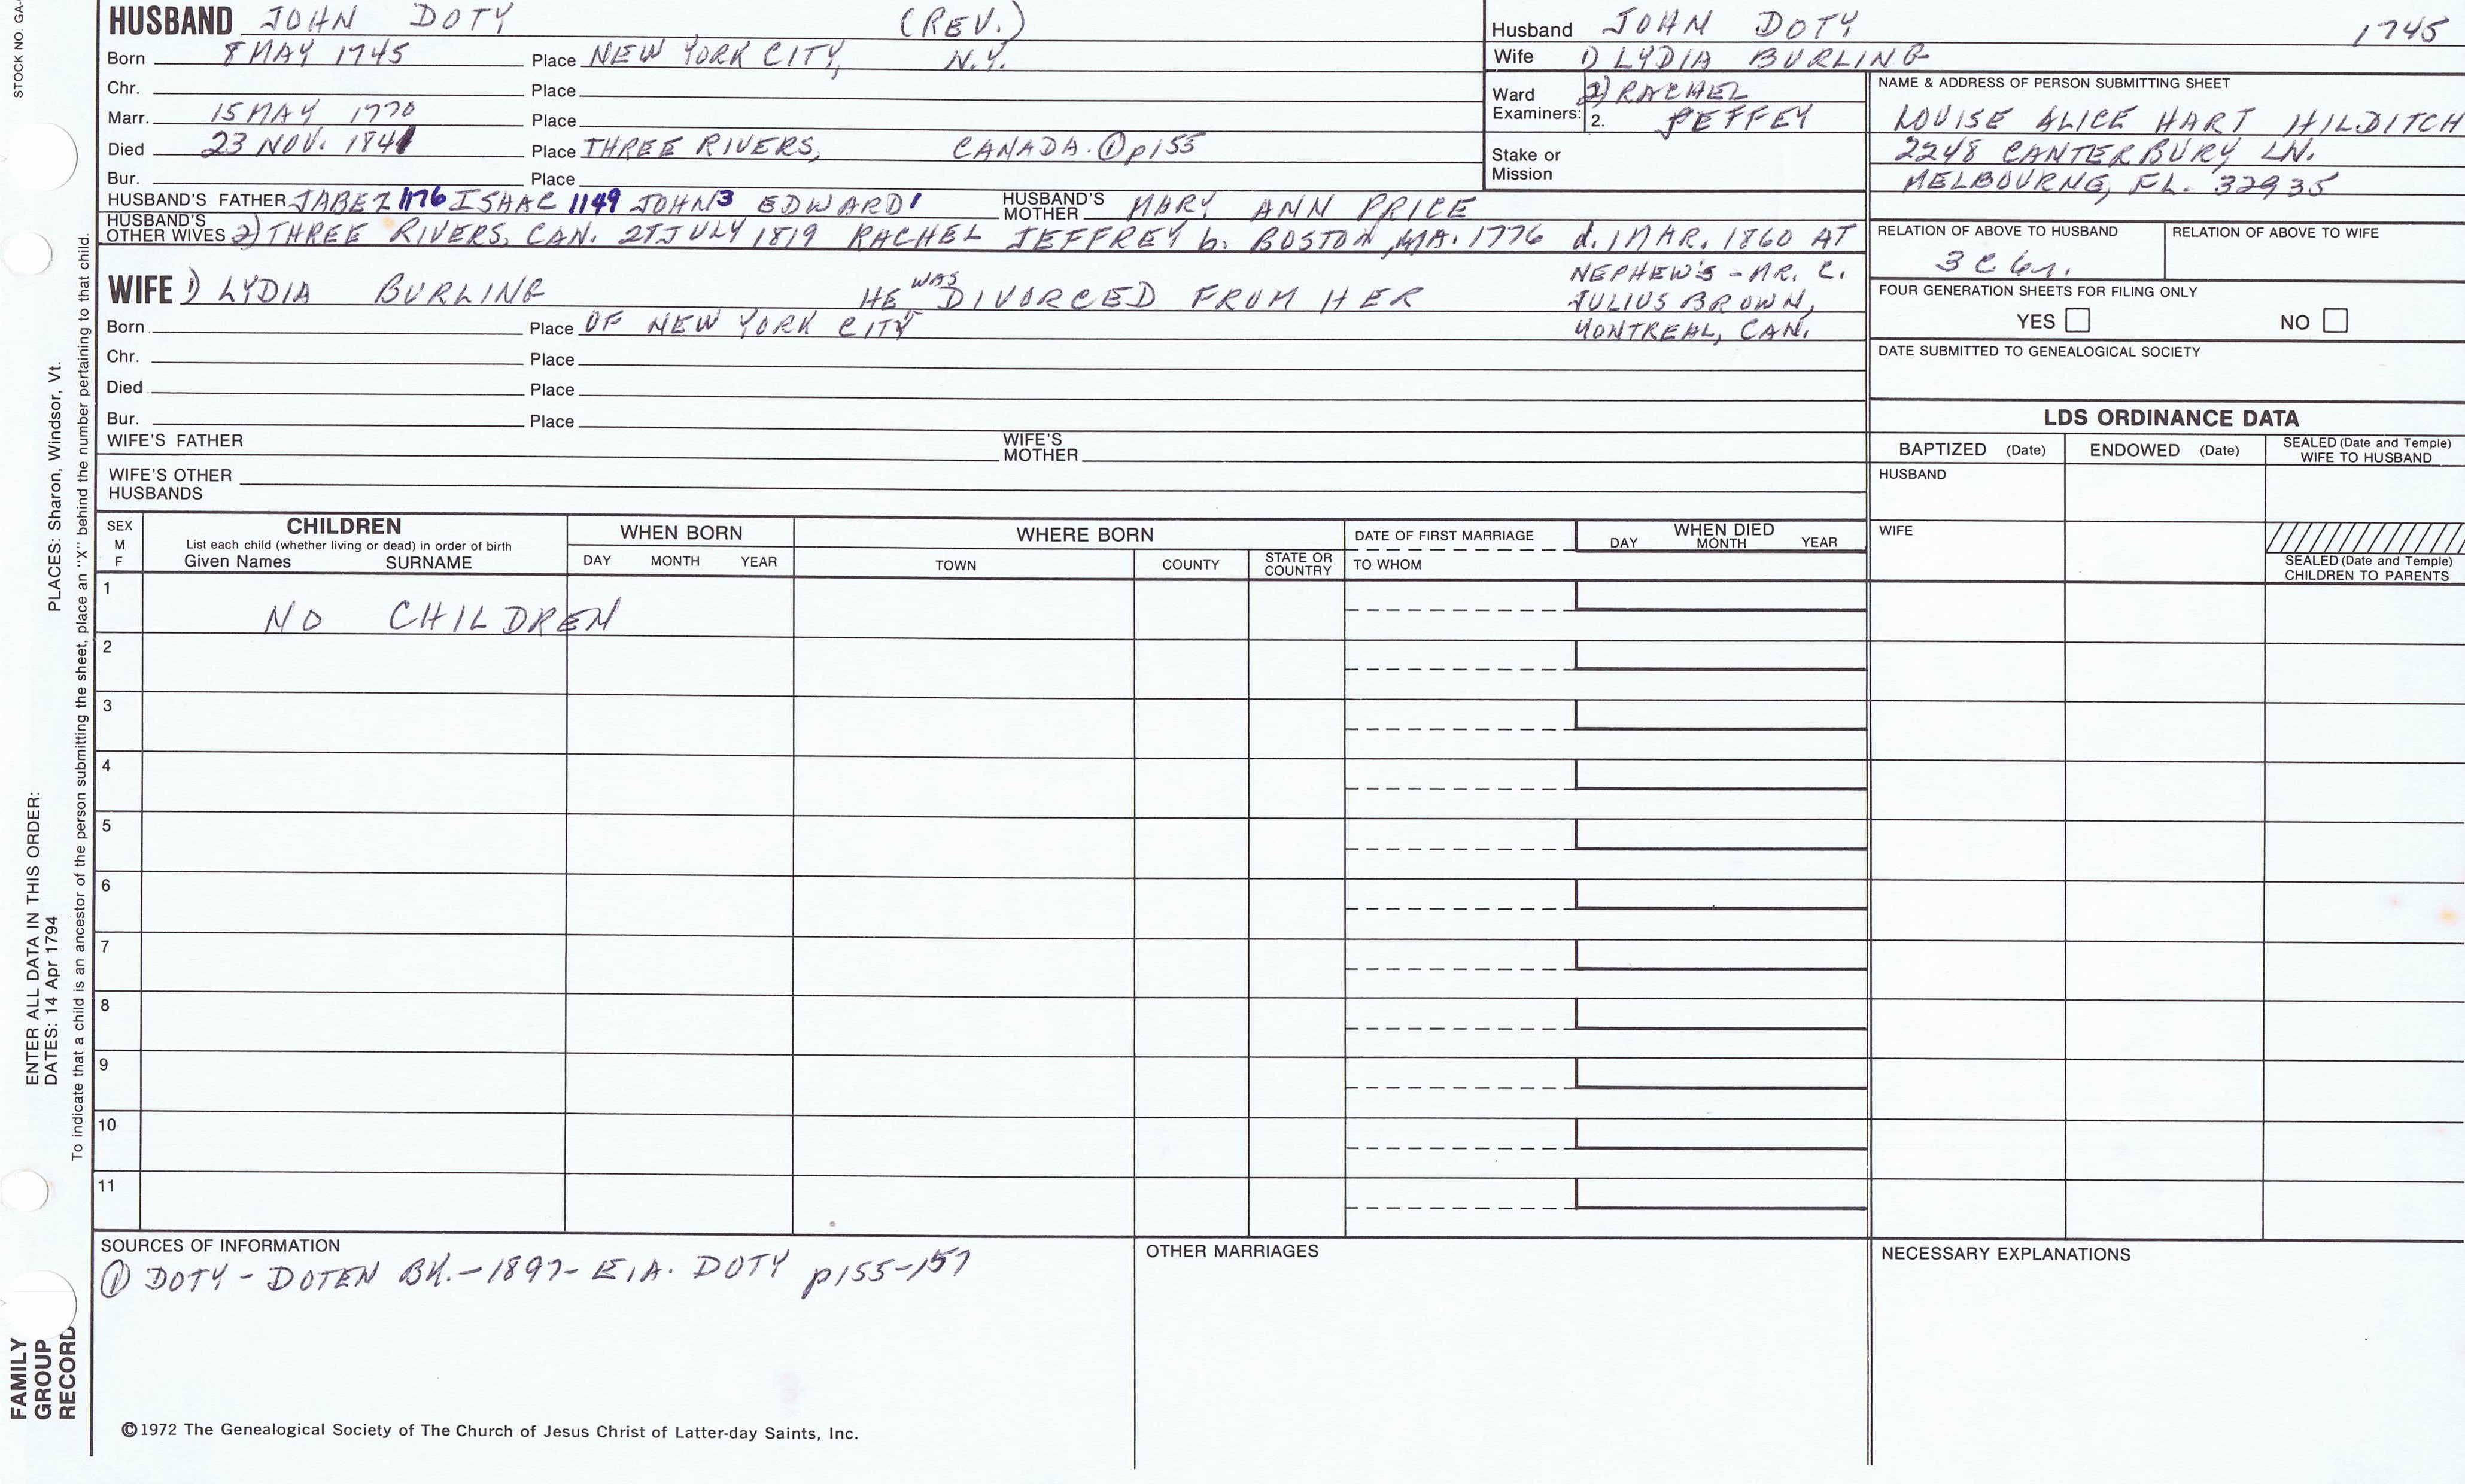 STOCK NO. GA-
HUSBAND JOHN DOTY (REV.)
Born 8 MAY 1745 Place NEW YORK CITY, N.Y.
Chr. Place
Marr. 15 MAY 1770 Place
Died 23 NOV. 1841 Place THREE RIVERS, CANADA. ① p155
Bur. Place
HUSBAND'S FATHER JABEZ 1176 ISAAC 1149 JOHN 3 EDWARD 1 HUSBAND'S MOTHER MARY ANN PRICE
HUSBAND'S OTHER WIVES 2) THREE RIVERS, CAN. JULY 1819 RACHEL JEFFREY b. BOSTON, MA. 1776 d. 1 MAR. 1860 AT
NEPHEW'S - MR. C.
JULIUS BROWN,
MONTREAL, CAN.
WIFE 1) LYDIA BURLING HE WAS DIVORCED FROM HER
Born Place OF NEW YORK CITY
Chr. Place
Died Place
Bur. Place
WIFE'S FATHER WIFE'S MOTHER
WIFE'S OTHER HUSBANDS
Husband JOHN DOTY 1745
Wife 1) LYDIA BURLING
Ward 2) RACHEL
Examiners: 2. PEFFEY
Stake or
Mission
NAME & ADDRESS OF PERSON SUBMITTING SHEET
LOUISE ALICE HART HILDITCH
2248 CANTERBURY LN.
MELBOURNE, FL. 32935
RELATION OF ABOVE TO HUSBAND RELATION OF ABOVE TO WIFE
3 C 6r.
FOUR GENERATION SHEETS FOR FILING ONLY
YES NO
DATE SUBMITTED TO GENEALOGICAL SOCIETY
LDS ORDINANCE DATA
BAPTIZED (Date) ENDOWED (Date) SEALED (Date and Temple) WIFE TO HUSBAND
HUSBAND
WIFE
SEALED (Date and Temple)
CHILDREN TO PARENTS
SEX M F
CHILDREN
List each child (whether living or dead) in order of birth
Given Names SURNAME
WHEN BORN
DAY MONTH YEAR
WHERE BORN
TOWN COUNTY STATE OR COUNTRY
DATE OF FIRST MARRIAGE
TO WHOM
WHEN DIED
DAY MONTH YEAR
1 NO CHILDREN
2
3
4
5
6
7
8
9
10
11
SOURCES OF INFORMATION
① DOTY - DOTEN BK. - 1897 - E.A. DOTY p155-157
OTHER MARRIAGES
NECESSARY EXPLANATIONS
©1972 The Genealogical Society of The Church of Jesus Christ of Latter-day Saints, Inc.
FAMILY
GROUP
RECORD
ENTER ALL DATA IN THIS ORDER:
DATES: 14 Apr 1794 PLACES: Sharon, Windsor, Vt.
To indicate that a child is an ancestor of the person submitting the sheet, place an "X" behind the number pertaining to that child.